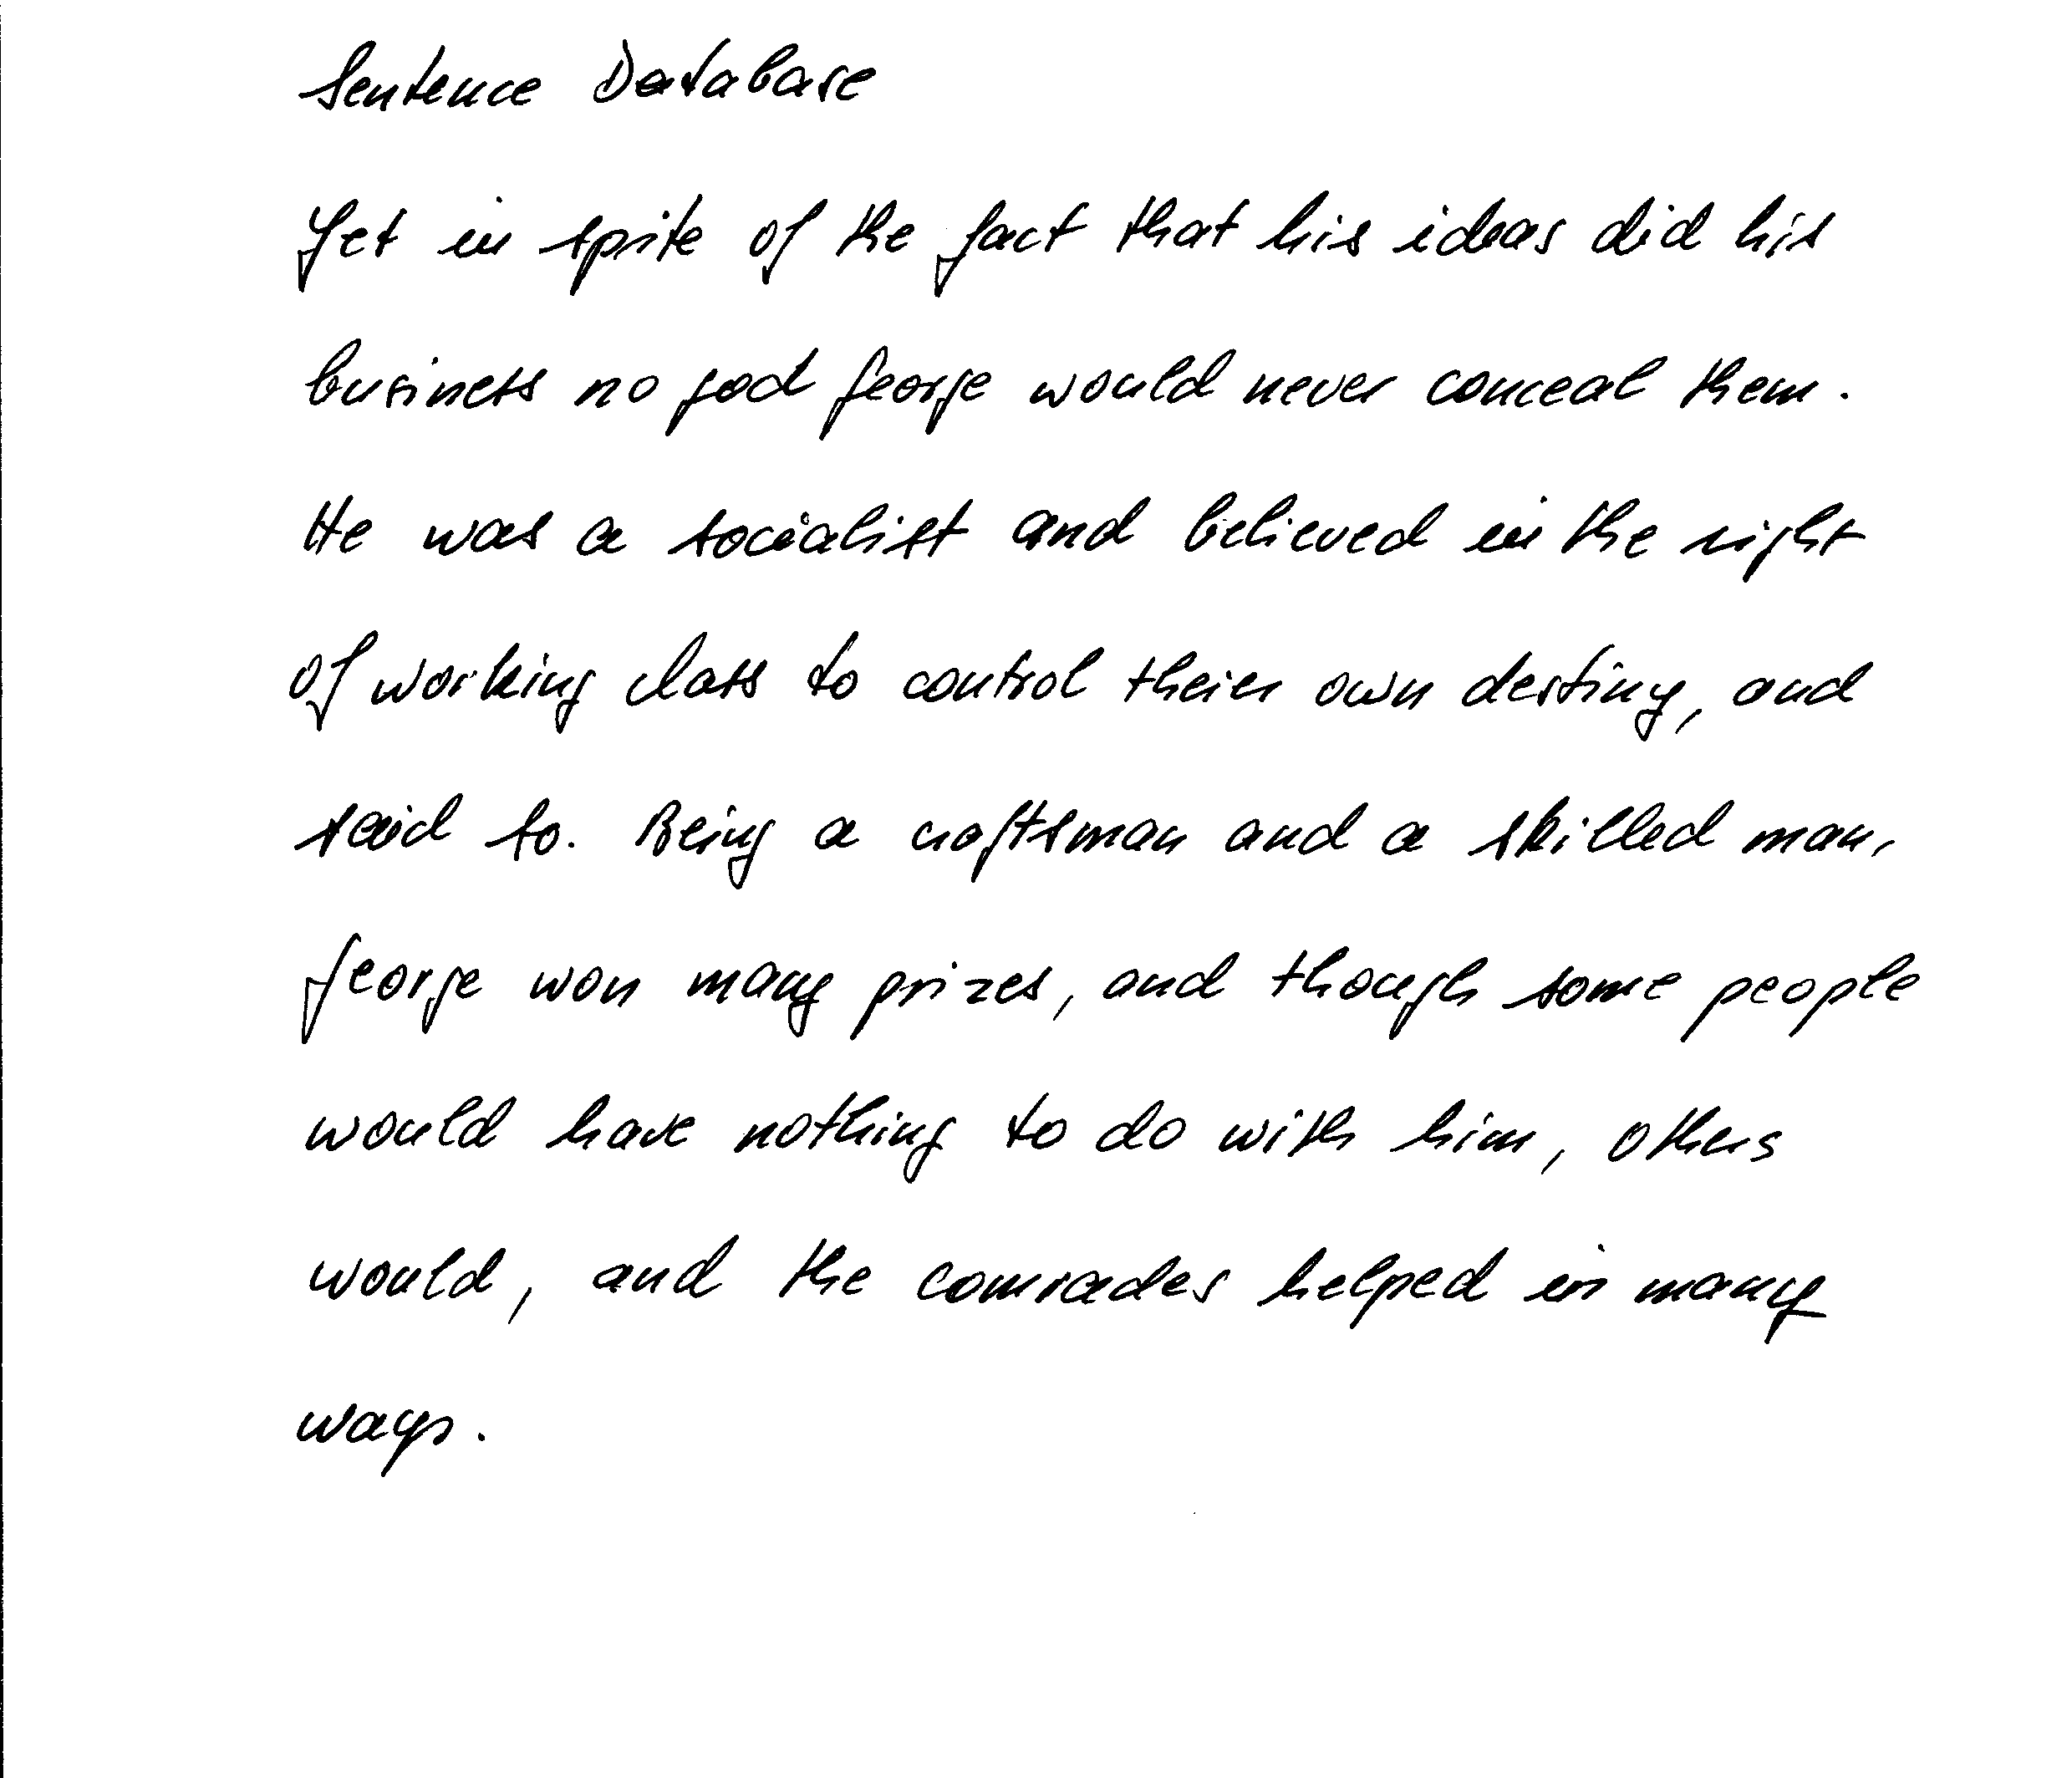 Sentence Database
Yet in spite of the fact that his ideas did his
business no god George would never conceal them.
He was a socialist and believed in the right
of working class to control theier own destiny, and
said so. Being a craftsman and a skilled man,
George won many prizes, and though some people
would have nothing to do with him, others
would, and the comrades helped in many
ways.